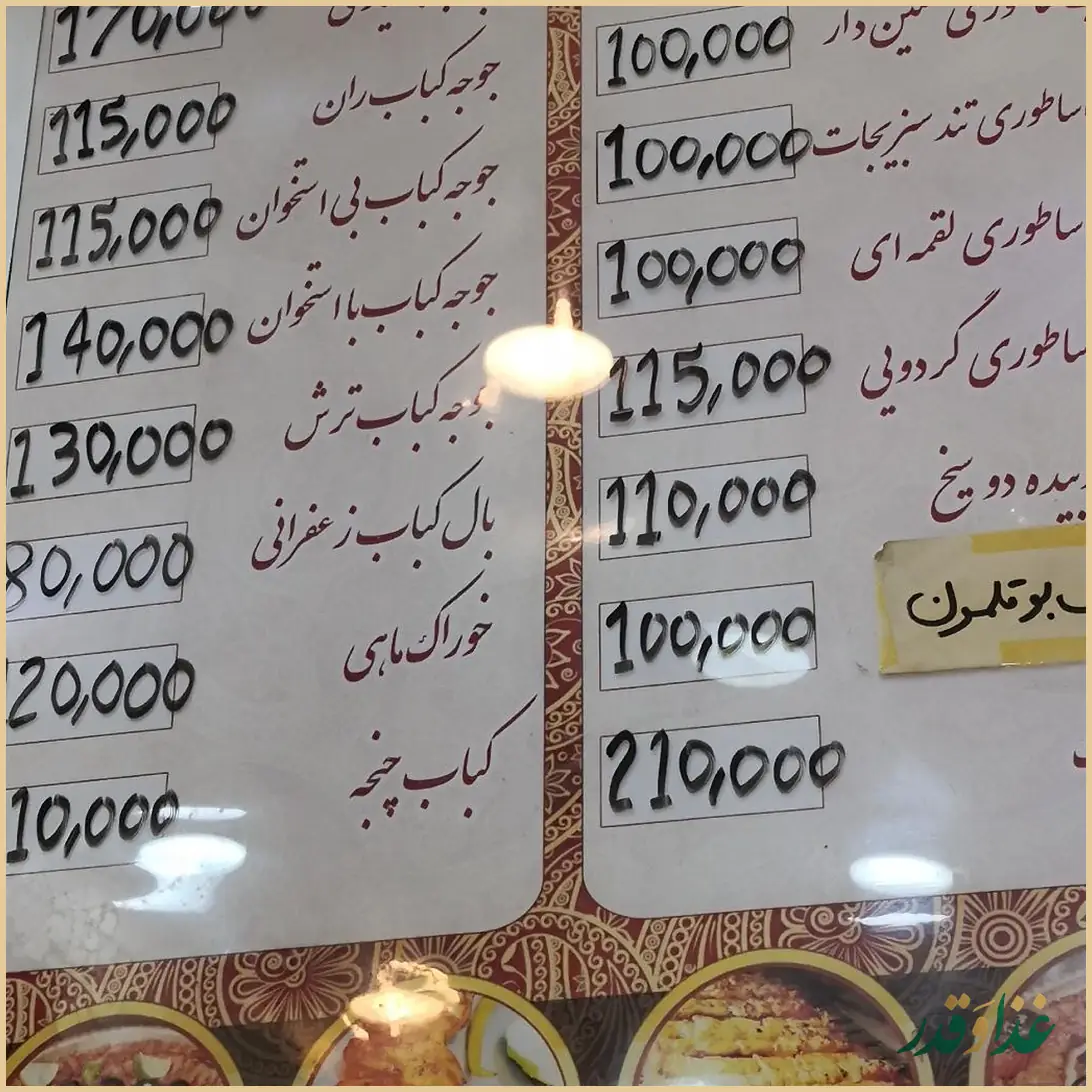 100,000
ساطوری تند سبزیجات 100,000
ساطوری لقمه ای 100,000
ساطوری گردویی 115,000
دو سیخ 110,000
بوقلمون 100,000
210,000
170,000
جوجه کباب ران 115,000
جوجه کباب بی استخوان 115,000
جوجه کباب با استخوان 140,000
جوجه کباب ترش 130,000
بال کباب زعفرانی 80,000
خوراک ماهی 20,000
کباب چنجه 10,000
غذا و قدر